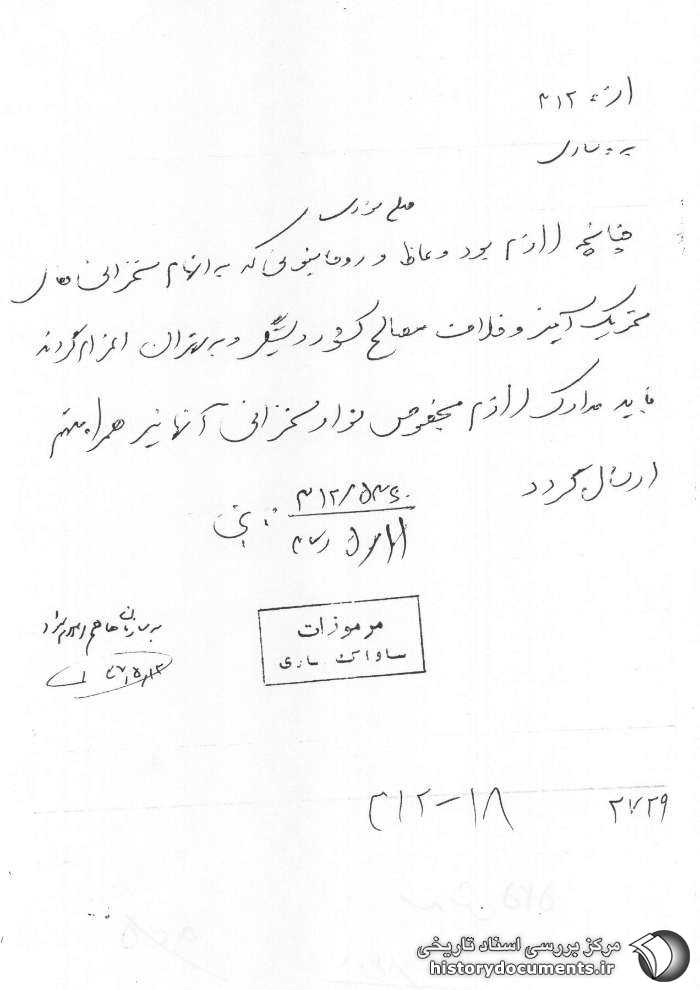 از: ۳۱۲
به: ساری
چنانچه لازم بود وعاظ و روحانیونی که به اتهام سخنرانی های
تحریک آمیز و خلاف مصالح کشور دستگیر و به تهران اعزام گردند
باید مدارک لازم بخصوص نوار سخنرانی آنها نیز همراه متهم
ارسال گردد
۳۱۲/۵۳۶۰
مرموزات
ساواک ساری
۳۱۲-۱۸
۲۷۲۹
مرکز بررسی اسناد تاریخی
historydocuments.ir